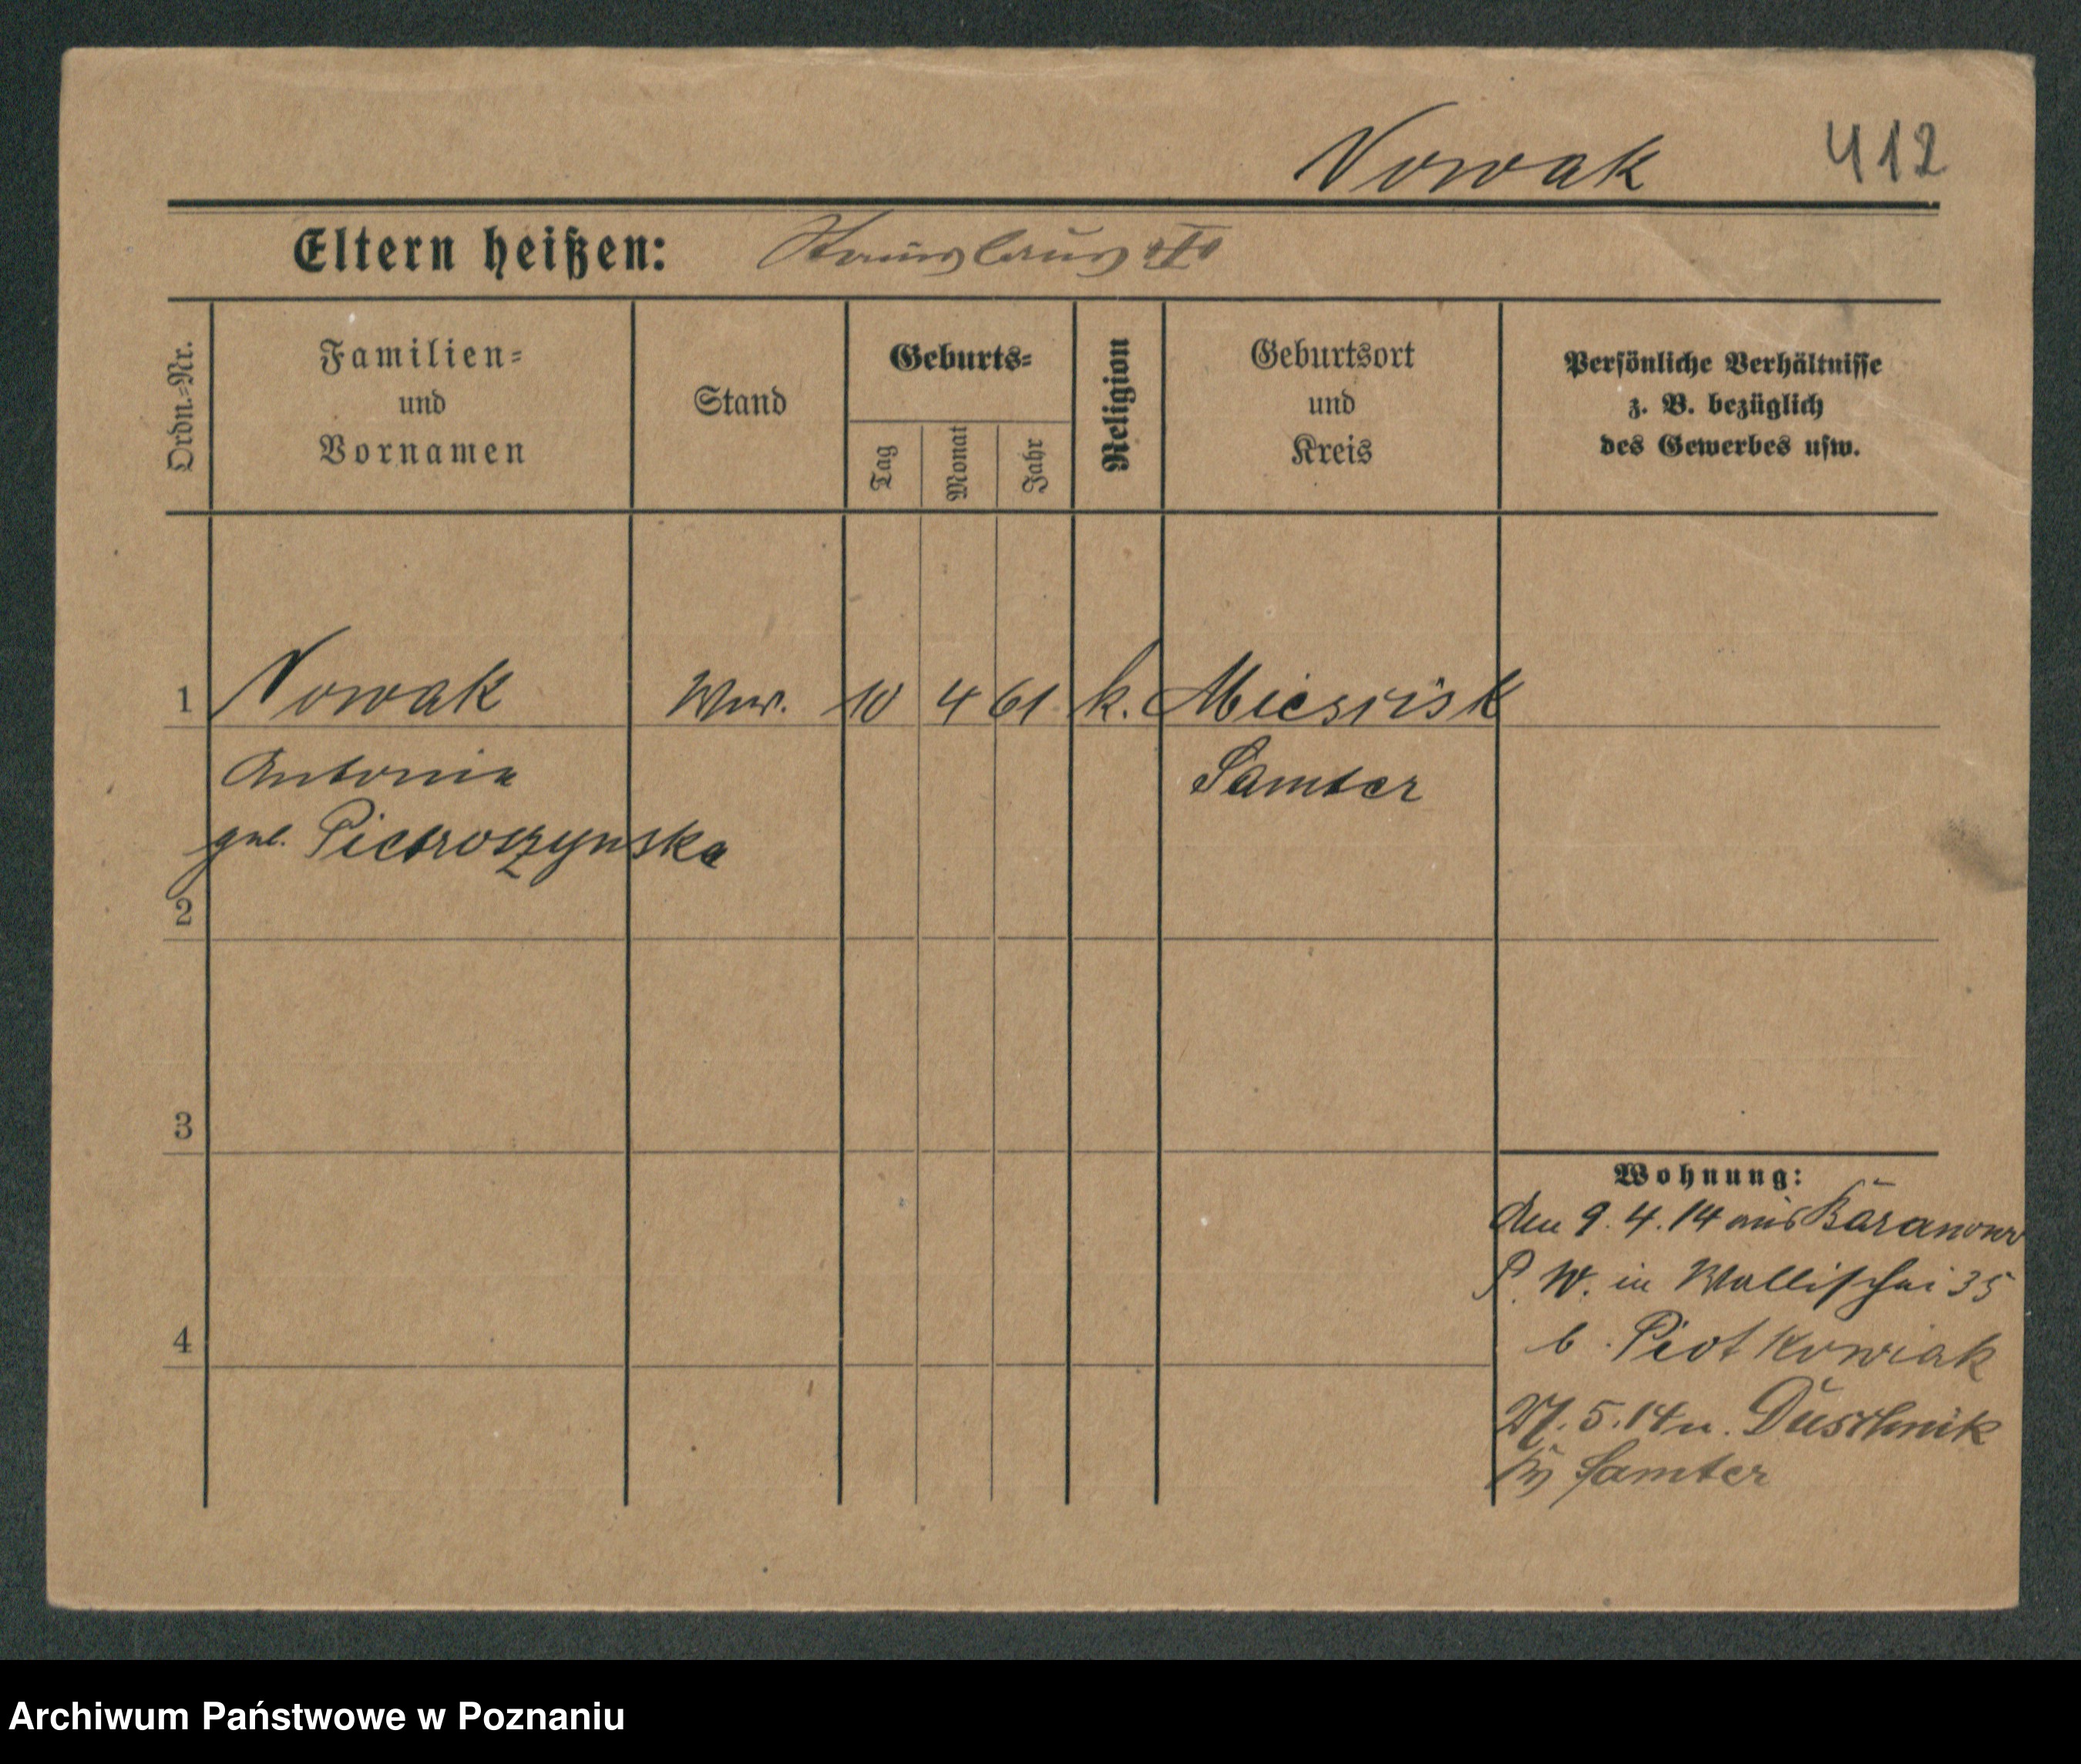 Nowak 412
Eltern heißen: Stanislaus
Ordn.=Nr.
Familien=
und
Vornamen
Stand
Geburts=
Tag
Monat
Jahr
Religion
Geburtsort
und
Kreis
Persönliche Verhältnisse
z. B. bezüglich
des Gewerbes usw.
1 Nowak Ww. 10 4 61 k.
Antonia Samter
geb. Pietroszynska
2
3
4
Wohnung:
den 9. 4. 14 aus Baranowo
P. W. in Wallischei 35
b. Piotrkowiak
27. 5. 14 n. Duschnik
Samter
Archiwum Państwowe w Poznaniu